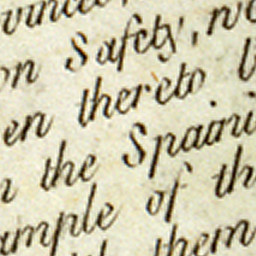 on Safety, no
en thereto
the Spaini
ample of th
them